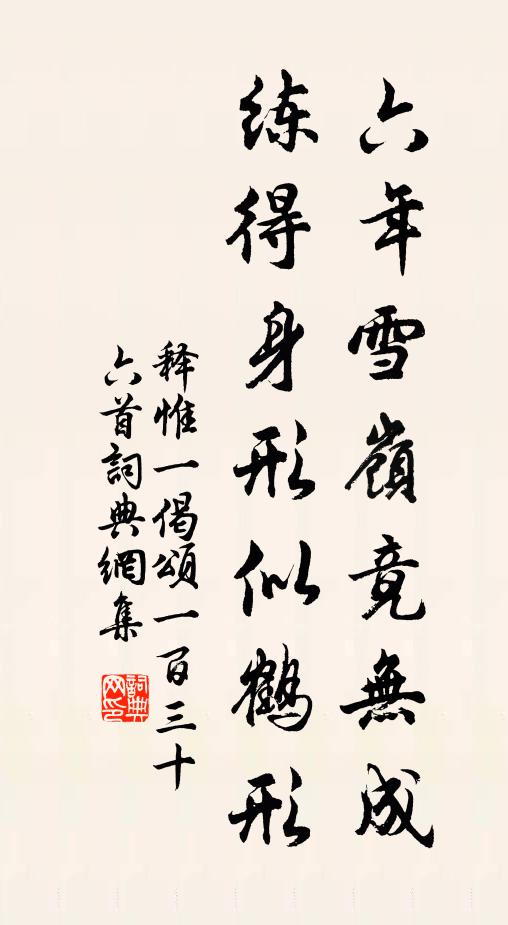 六年雪嶺竟無成
练得身形似鶴形
释惟一偈頌一百三十
六首詞典網集
詞典
网印